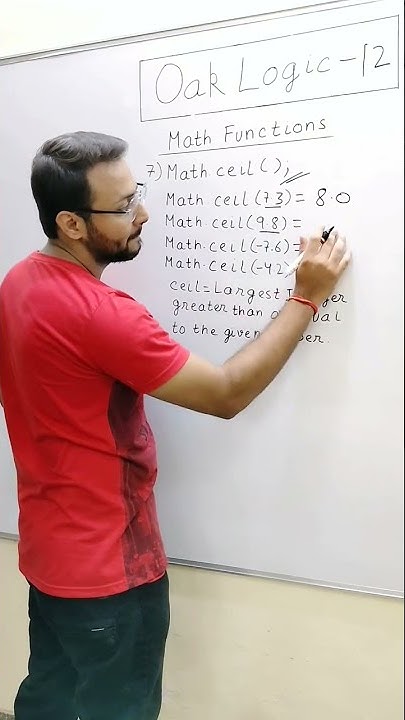 Oak Logic-12
Math Functions
7) Math ceil();
Math ceil(7.3) = 8.0
Math.ceil(9.8) =
Math.ceil(-7.6) =
Math.ceil(-4.2)
ceil = Largest
greater than
to the given